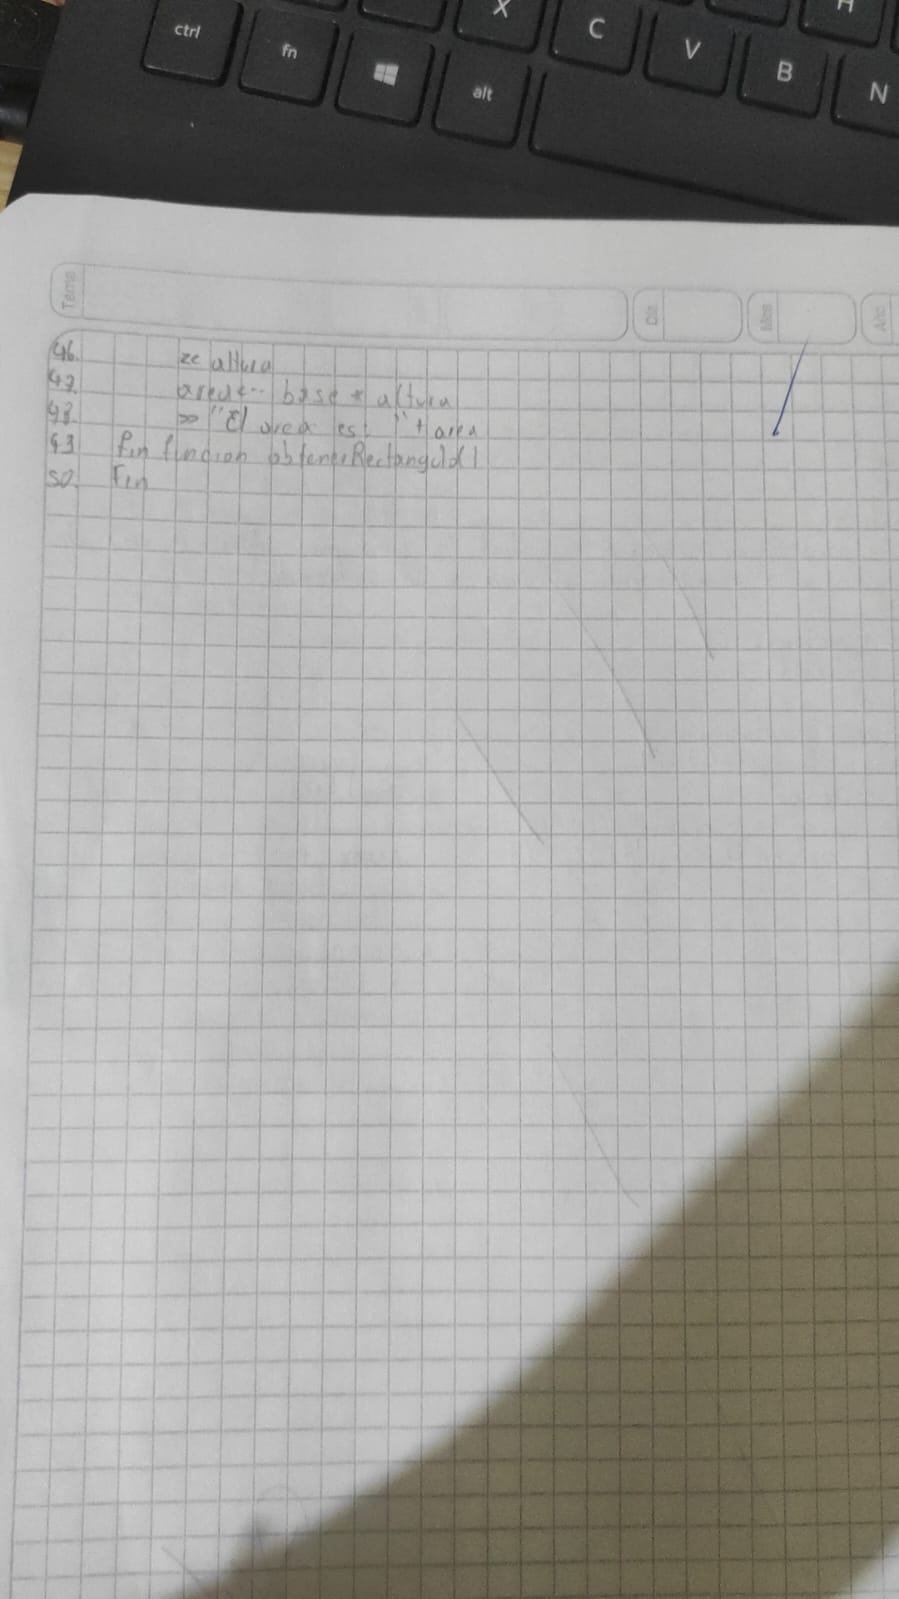 X
H
ctrl
fn
alt
C
V
B
N
Tema
Día
Mes
Año
46. altura
47. area <-- base * altura
48. >> "El area es: " + area
49 fin funcion obtenerRectangulo()
50. Fin